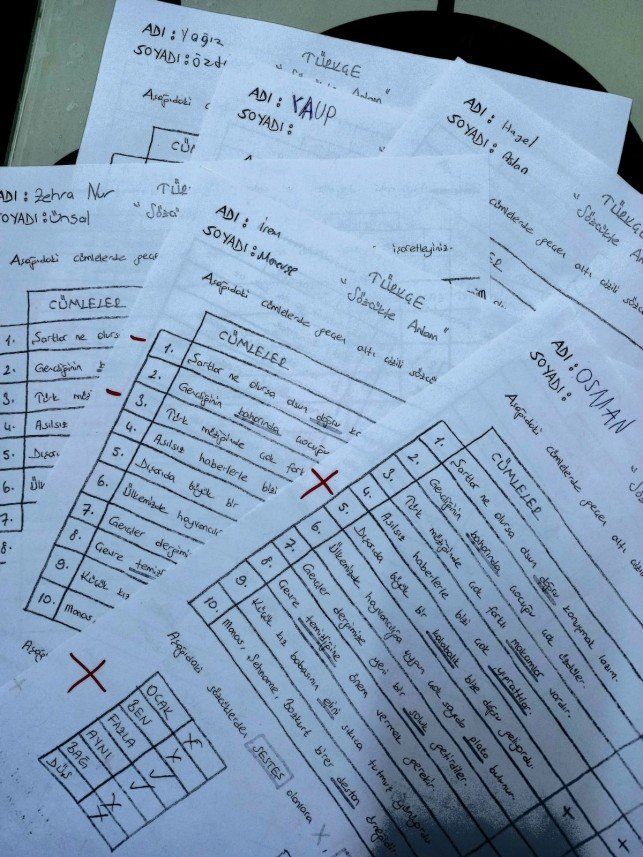 ADI : Yağız
SOYADI : Özd
TÜRKÇE
Aşağıdaki c
CÜM
ADI : YAUP
SOYADI :
ADI : Hazel
SOYADI : Aslan
TÜRKÇE
" Sözcükte Anlam
Aşağıdaki cümlelerde geçen altı çizili
işaretleyiniz.
ADI : Zehra Nur
SOYADI : Ünsal
TÜR
" Sözcü
Aşağıdaki cümlelerde geçe
CÜMLELER
1. Şartlar ne olurs
2. Gençliğinin
3. Türk mü
4. Asılsız
5. Dışarı
6. Ülk
7.
8.
Aşağı
ADI : İrem
SOYADI :
TÜRKÇE
" Sözcükte Anlam "
Aşağıdaki cümlelerde geçen altı çizili sözcü
CÜMLELER
1. Şartlar ne olursa olsun doğru k
2. Gençliğinin baharında çocuğu
3. Türk müziğinde çok fark
4. Asılsız haberlerle bizi
5. Dışarıda büyük bir
6. Ülkemizde hayvancılı
7. Gençler dergimi
8. Çevre temiz
9. Küçük kız
10. Manas,
ADI : OSMAN
SOYADI :
Aşağıdaki cümlelerde geçen altı çizili
CÜMLELER
1. Şartlar ne olursa olsun doğru konuşmak lazım.
2. Gençliğinin baharında çocuğu çok üzdüler.
3. Türk müziğinde çok farklı makamlar vardır.
4. Asılsız haberlerle bizi çok yıprattılar.
5. Dışarıda büyük bir kalabalık bize doğru geliyordu.
6. Ülkemizde hayvancılığa uygun çok sayıda plato bulunur.
7. Gençler dergimize yeni bir soluk getirdiler.
8. Çevre temizliğine önem vermek gerekir.
9. Küçük kız babasının elini sıkıca tutmuş yürüyordu.
10. Manas, Şehname, Bozkurt birer destan örneğidir.
Aşağıdaki sözcüklerden SESTEŞ olanlara
OCAK X
BEN X
FAZLA ✓
AYNI ✓
BAĞ X
DÜŞ X